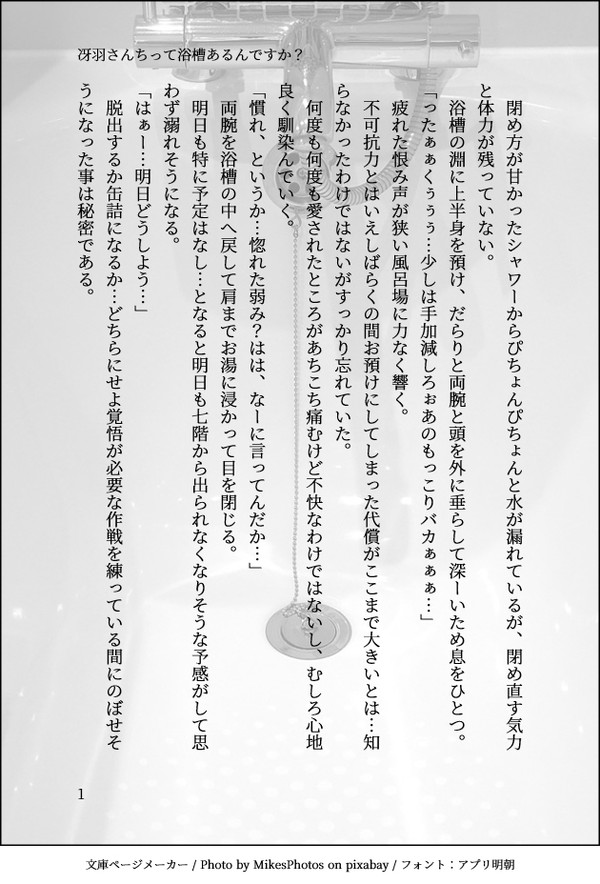 冴羽さんちって浴槽あるんですか？
　閉め方が甘かったシャワーからぴちょんぴちょんと水が漏れているが、閉め直す気力
と体力が残っていない。
　浴槽の淵に上半身を預け、だらりと両腕と頭を外に垂らして深ーいため息をひとつ。
「ったぁぁくぅぅぅ…少しは手加減しろぉあのもっこりバカぁぁぁ…」
　疲れた恨み声が狭い風呂場に力なく響く。
　不可抗力とはいえしばらくの間お預けにしてしまった代償がここまで大きいとは…知
らなかったわけではないがすっかり忘れていた。
　何度も何度も愛されたところがあちこち痛むけど不快なわけではないし、むしろ心地
良く馴染んでいく。
「慣れ、というか…惚れた弱み？はは、なーに言ってんだか…」
　両腕を浴槽の中へ戻して肩までお湯に浸かって目を閉じる。
　明日も特に予定はなし…となると明日も七階から出られなくなりそうな予感がして思
わず溺れそうになる。
「はぁー…明日どうしよう…」
　脱出するか缶詰になるか…どちらにせよ覚悟が必要な作戦を練っている間にのぼせそ
うになった事は秘密である。
1
文庫ページメーカー / Photo by MikesPhotos on pixabay / フォント：アプリ明朝